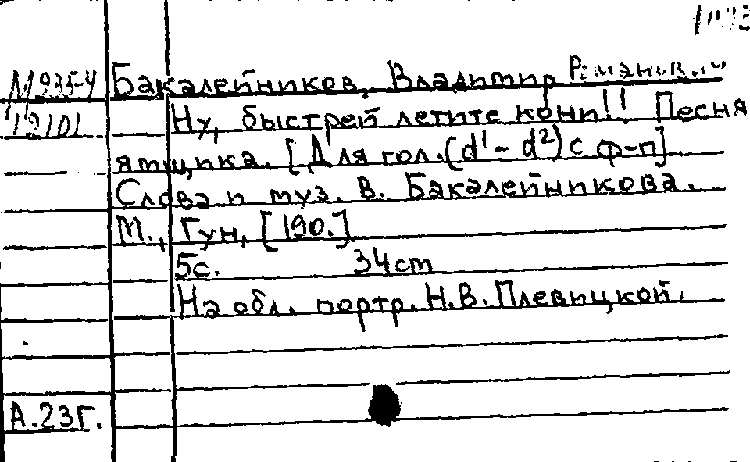 М 935-4 Бакалейников, Владимир Романович
12101 Ну, быстрей летите кони!! Песня
ямщика. [Для гол. (d¹-d²) с ф-п]
Слова и муз. В. Бакалейникова.
М., Гун, [190.]
5с. 34cm
На обл. портр. Н.В. Плевицкой.
А.23г.